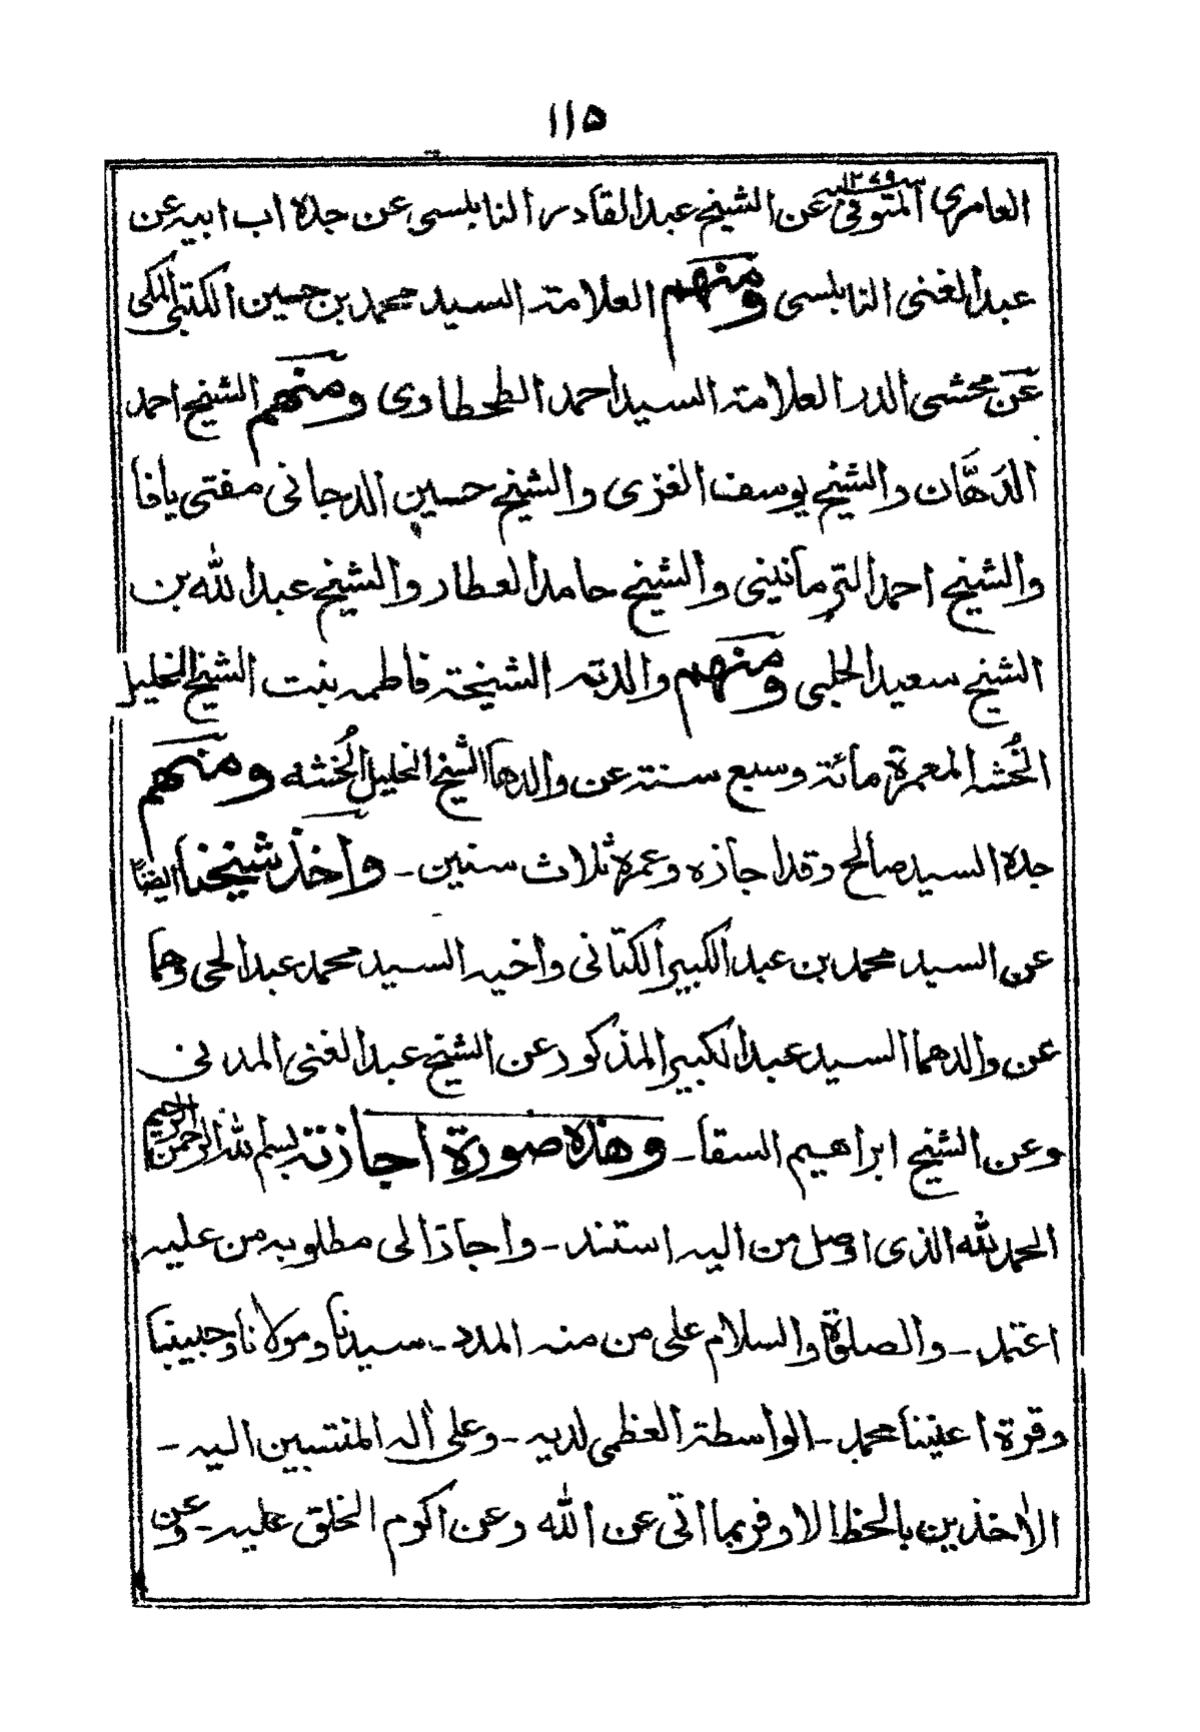 ١١٥
العامري المتوفى سنة ١٢٧٩ عن الشيخ عبد القادر النابلسي عن جده اب ابيه عن
عبد الغنى النابلسى ومنهم العلامة السيد محمد بن حسين الكتبى المكى
عن محشى الدر العلامة السيد احمد الطحطاوى ومنهم الشيخ احمد
الدَهَّان والشيخ يوسف الغزى والشيخ حسين الدجانى مفتى يافا
والشيخ احمد الترمانينى والشيخ حامد العطار والشيخ عبد الله بن
الشيخ سعيد الحلبى ومنهم والدته الشيخة فاطمه بنت الشيخ الخليل
الخُشه المعمرة مائة وسبع سنة عن والدها الشيخ الخليل الخُشه ومنهم
جده السيد صالح وقد اجازه وعمره ثلاث سنين - وأخذ شيخنا ايضًا
عن السيد محمد بن عبد الكبير الكتانى واخيه السيد محمد عبد الحى وهما
عن والدهما السيد عبد الكبير المذكور عن الشيخ عبد الغنى المدنى
وعن الشيخ ابراهيم السقا - وهذه صورة اجازته بسم الله الرحمن الرحيم
الحمد لله الذى اوصل من اليه استند - واجاز الى مطلوبه من عليه
اعتمد - والصلوة والسلام على من منه المدد - سيدنا ومولانا وحبيبنا
وقرة اعيننا محمد - الواسطة العظمى لديه - وعلى أله المنتسبين اليه -
الأخذين بالحظ الاوفر بما اتى عن الله وعن اكرم الخلق عليه - وعن